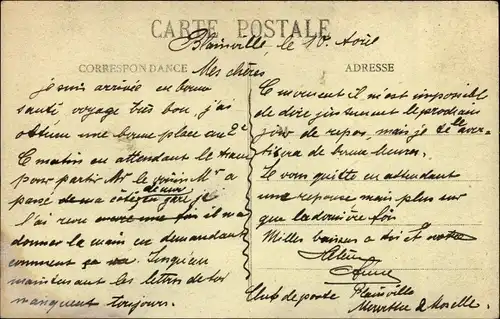 CARTE POSTALE
Blainville, le 10 Août
CORRESPONDANCE
Mes chères
je suis arrivée en bonne
santé, voyage très bon, j'ai
obtenu une bonne place en 2e
Ce matin en attendant le train
pour partir Mr le Mr a
passé de ma côté gare je
l'ai revu avec une fois il m'a
donner la main en demandant
comment ça va. Jusqu'en
maintenant les lettres de toi
manquent toujours.
ADRESSE
Ce moment il m'est impossible
de dire justement le prochain
jour de repos, mais je te aver-
tisera de bonne heure.
Je vous quitte en attendant
une reponse mais plus sur
que la dernière fois
Milles baisers a toi et
Club de poste Blainville
Meurthe & Moselle.